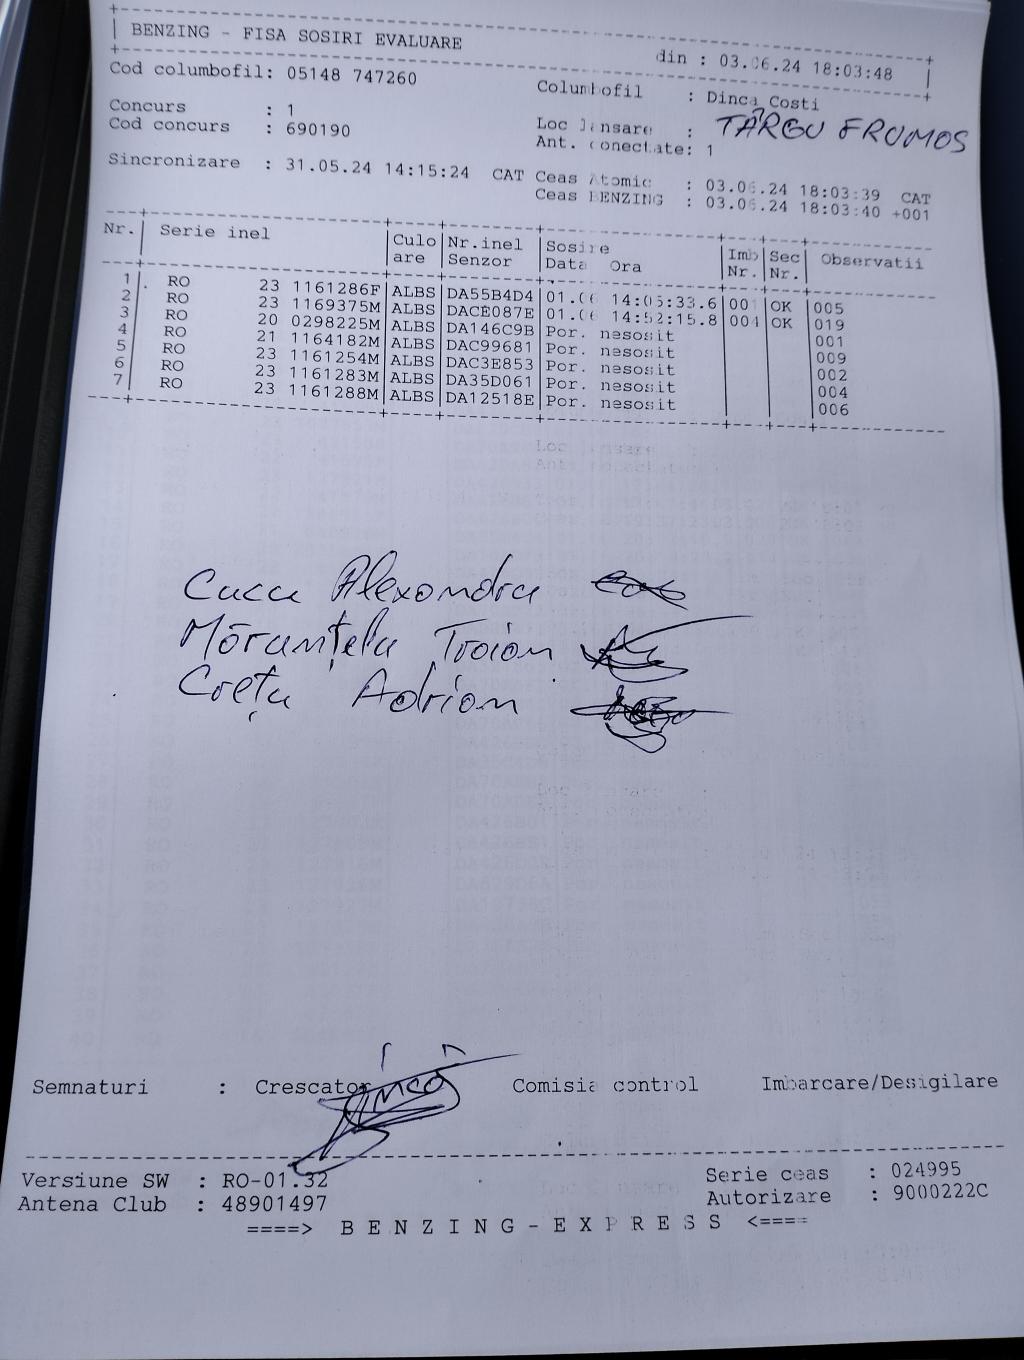 BENZING - FISA SOSIRI EVALUARE din : 03.06.24 18:03:48
Cod columbofil: 05148 747260 Columbofil : Dinca Costi
Concurs : 1 Loc lansare : TÂRGU FRUMOS
Cod concurs : 690190 Ant. conectate: 1
Sincronizare : 31.05.24 14:15:24 CAT Ceas Atomic : 03.06.24 18:03:39 CAT
Ceas BENZING : 03.06.24 18:03:40 +001
Nr. Serie inel Culo Nr.inel Sosire Imb Sec Observatii
are Senzor Data Ora Nr. Nr.
1 RO 23 1161286F ALBS DA55B4D4 01.06 14:05:33.6 001 OK 005
2 RO 23 1169375M ALBS DACE087E 01.06 14:52:15.8 004 OK 019
3 RO 20 0298225M ALBS DA146C9B Por. nesosit 001
4 RO 21 1164182M ALBS DAC99681 Por. nesosit 009
5 RO 23 1161254M ALBS DAC3E853 Por. nesosit 002
6 RO 23 1161283M ALBS DA35D061 Por. nesosit 004
7 RO 23 1161288M ALBS DA12518E Por. nesosit 006
Cucu Alexandru
Mărunțelu Troian
Crețu Adrian
Semnaturi : Crescator Comisia control Imbarcare/Desigilare
Versiune SW : RO-01.32 Serie ceas : 024995
Antena Club : 48901497 Autorizare : 9000222C
====> B E N Z I N G - E X P R E S S <====